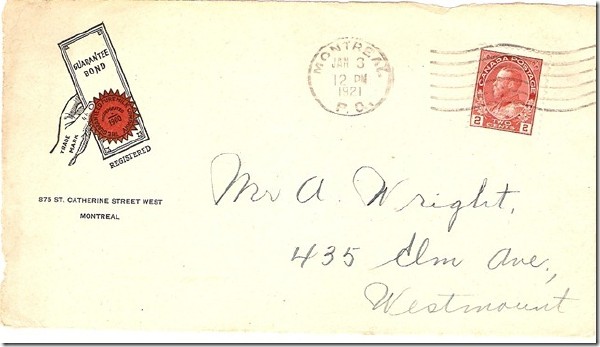 GUARANTEE
BOND
1910
TRADE
MARK
REGISTERED
875 ST. CATHERINE STREET WEST
MONTREAL
MONTREAL
JAN 3
12 PM
1921
P.Q.
CANADA POSTAGE
2 TWO CENTS 2
Mr A. Wright,
435 Elm Ave.,
Westmount